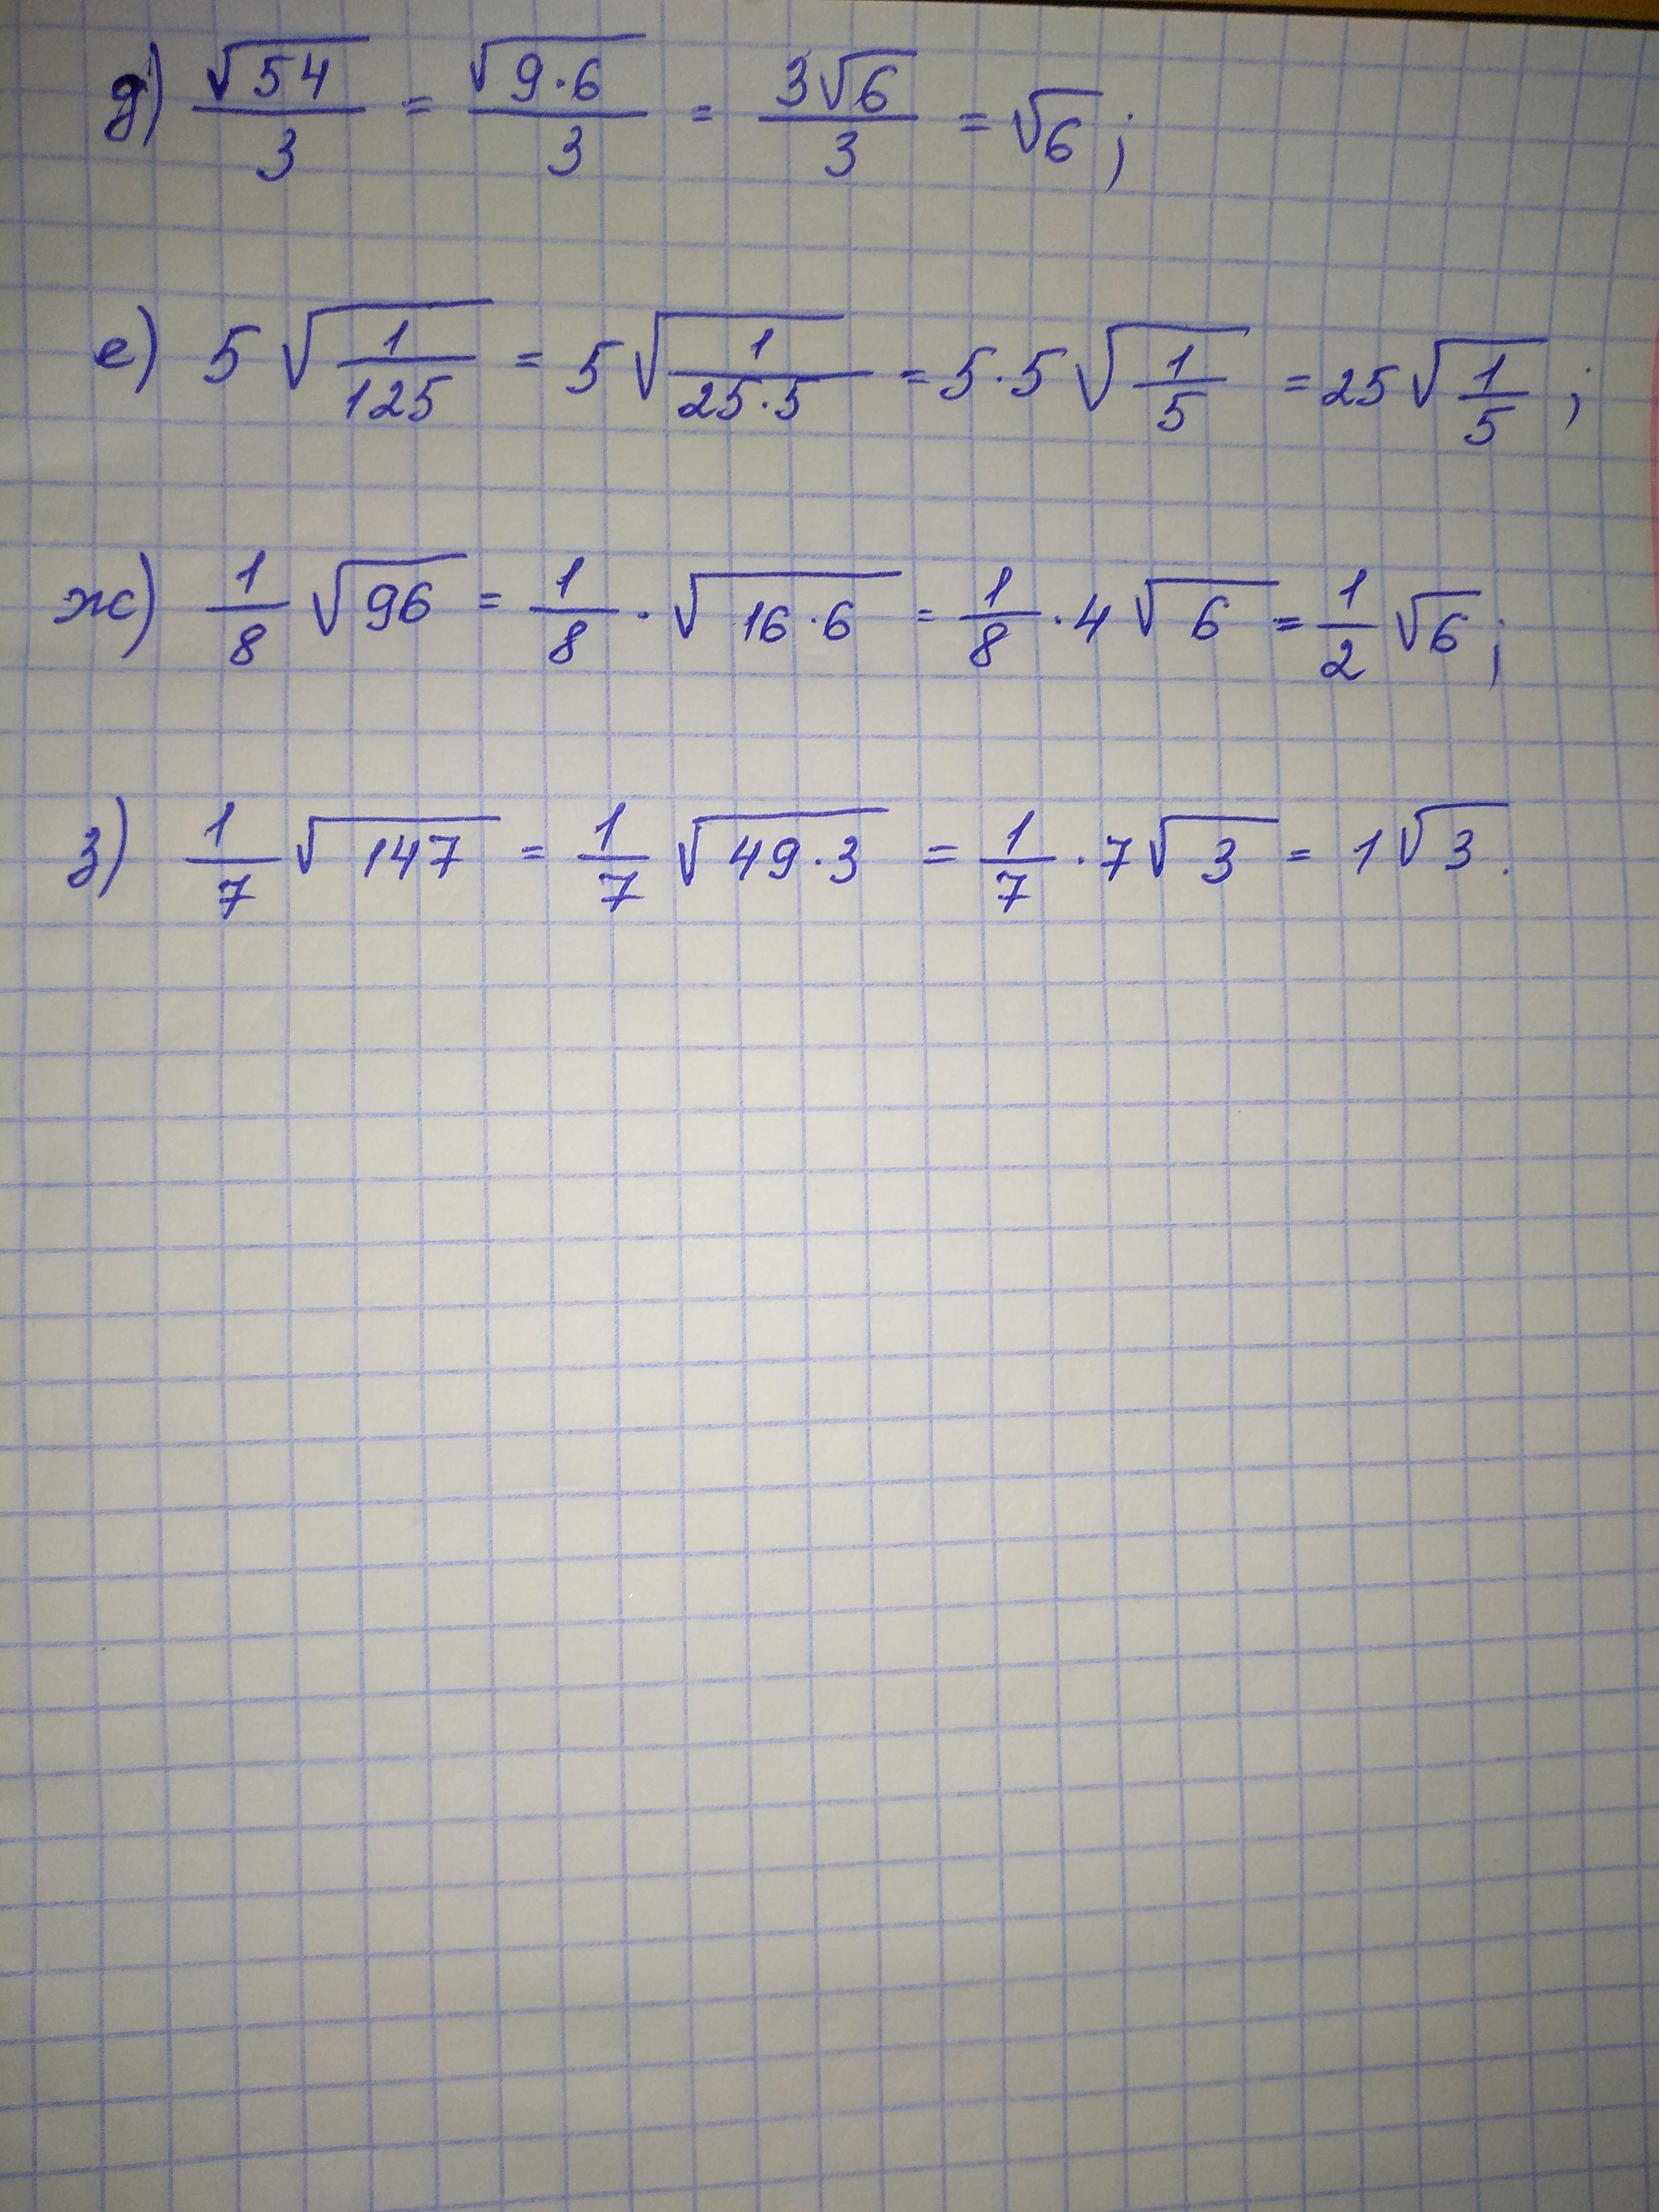 д) √54/3 = √(9·6)/3 = 3√6/3 = √6;
е) 5√(1/125) = 5√(1/(25·5)) = 5·5√(1/5) = 25√(1/5);
ж) 1/8 √96 = 1/8 · √(16·6) = 1/8 · 4√6 = 1/2 √6;
з) 1/7 √147 = 1/7 √(49·3) = 1/7 · 7√3 = 1√3.